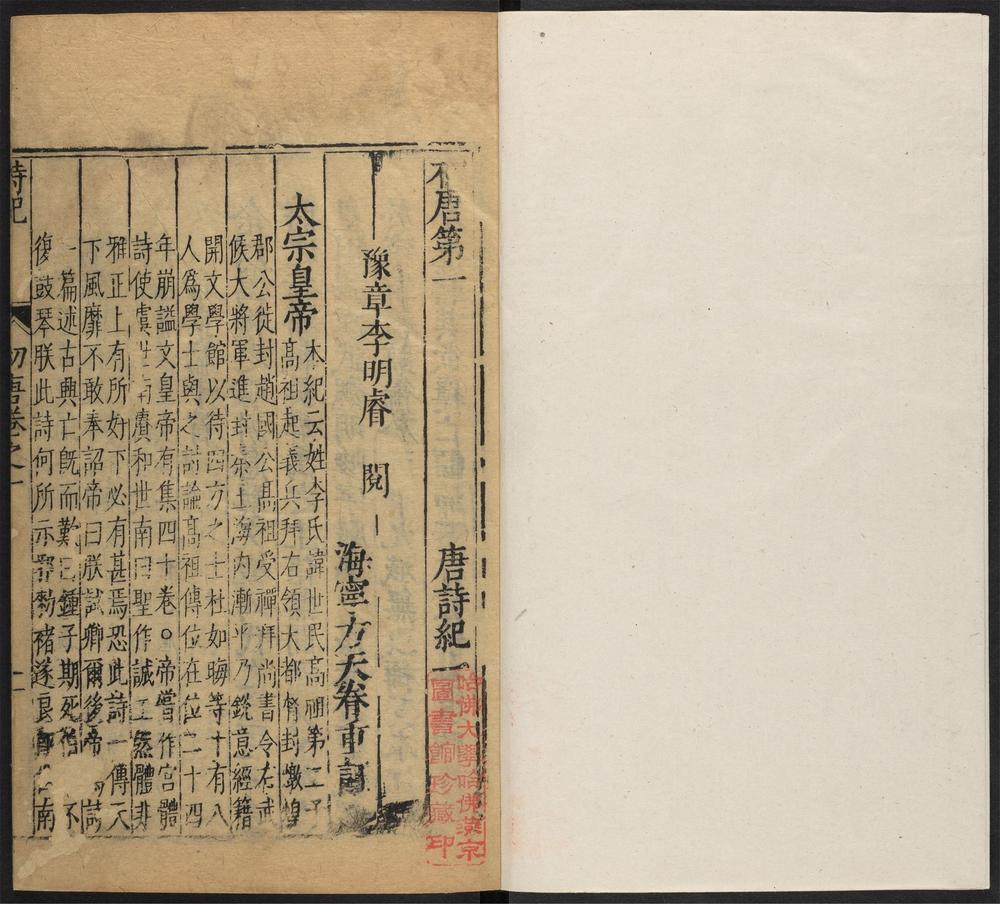 初唐第一 唐詩紀一
豫章李明睿 閱
海寧方天眷重訂
太宗皇帝
本紀云姓李氏諱世民高祖第二子
高祖起義兵拜右領大都督封燉煌
郡公徙封趙國公高祖受禪拜尚書令右武
候大將軍進封秦王海內漸平乃銳意經籍
開文學館以待四方之士杜如晦等十有八
人為學士與之討論高祖傳位在位二十四
年崩謚文皇帝有集四十卷○帝嘗作宮體
詩使虞世南賡和世南曰聖作誠工然體非
雅正上有所好下必有甚焉恐此詩一傳天
下風靡不敢奉詔帝曰朕試卿爾後帝 詩
一篇述古興亡既而歎曰鍾子期死伯 不
復鼓琴朕此詩何所示 勑褚遂良 南
詩紀 初唐卷之一 一
哈佛大學哈佛燕京
圖書館珍藏印